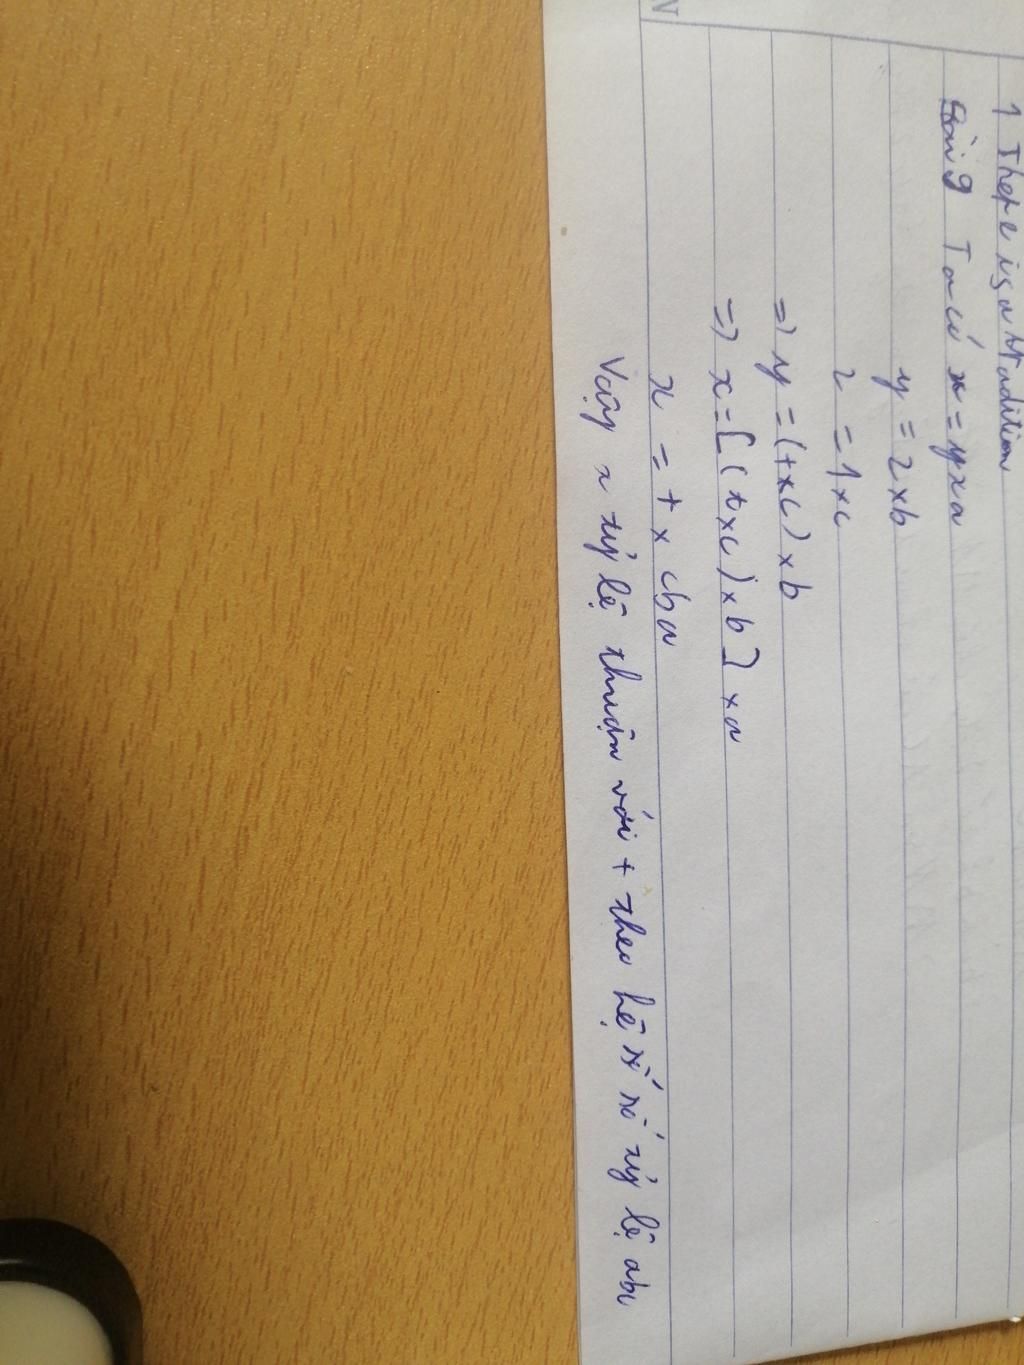 1 There is a tradition
Bài 9 Ta có x = y x a
y = z x b
z = t x c
=> y = (t x c) x b
=> x = [(t x c) x b] x a
x = t x cba
Vậy x tỷ lệ thuận với t theo hệ số tỷ lệ abc
N